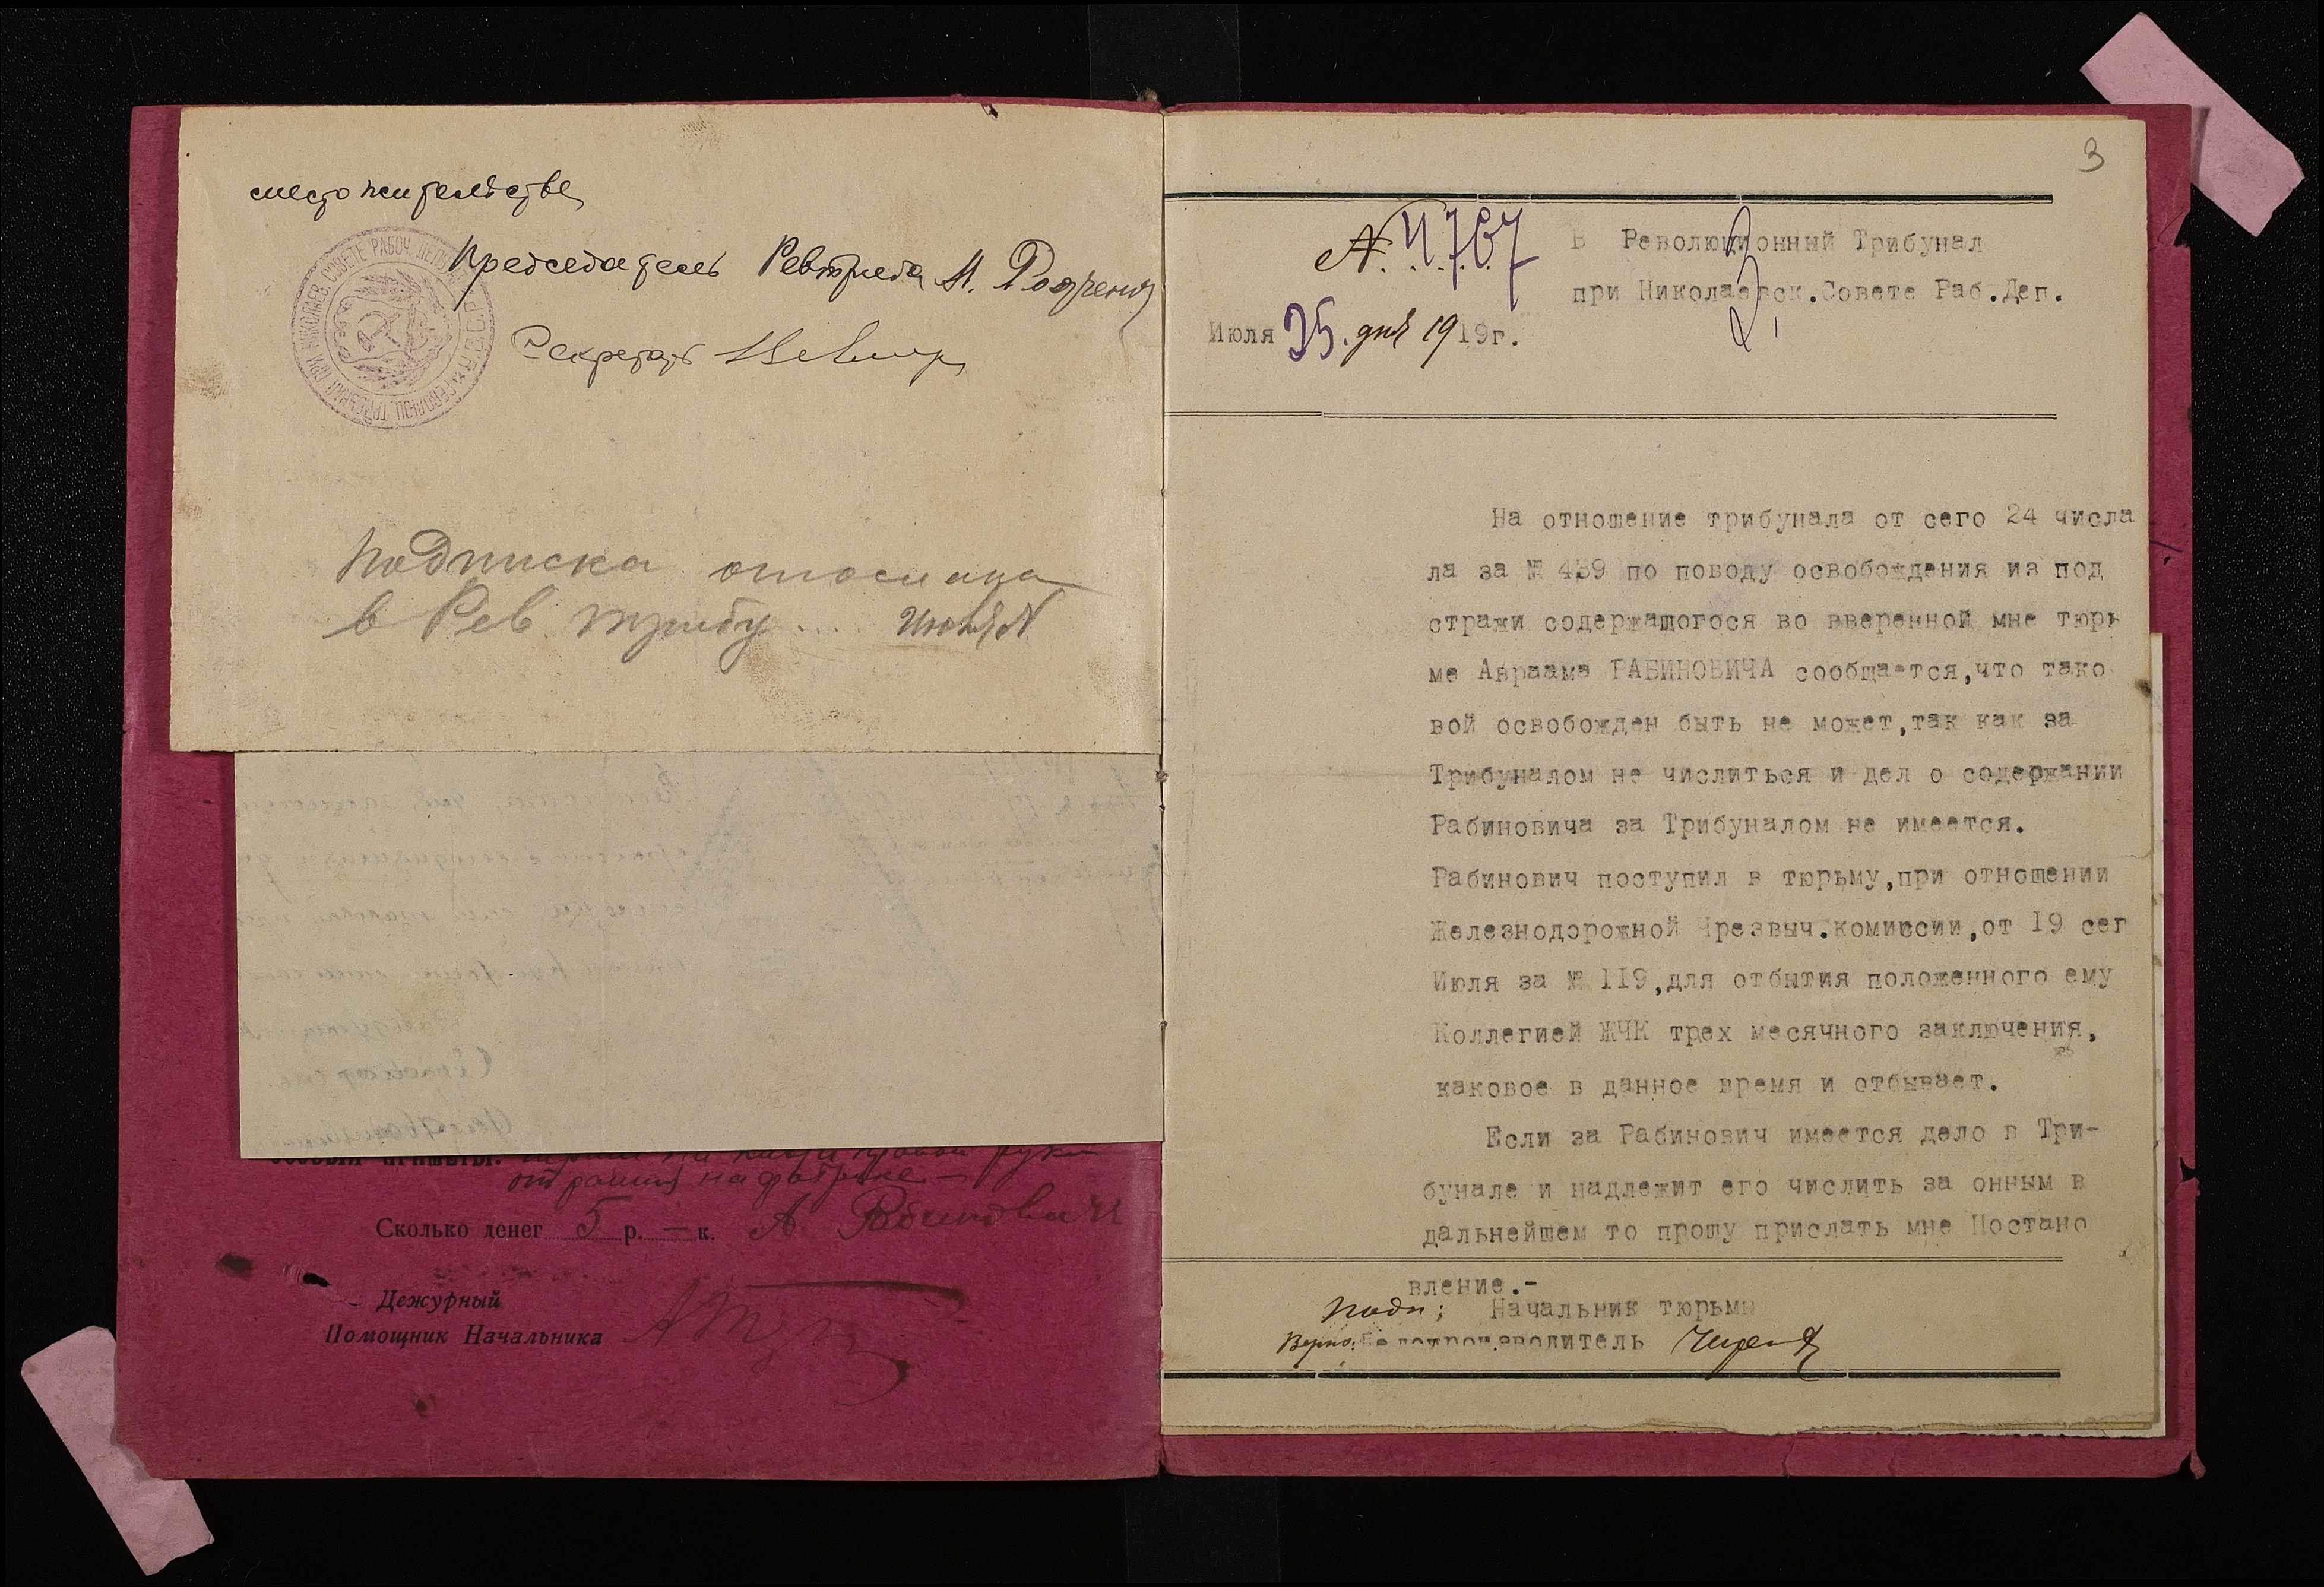 место жительства
Председатель Ревтриба И.
Секретарь
Подписка отослана
в Рев трибу....
от раны на фабрике
Сколько денег 5 р. — к. А. Рабинович
Дежурный
Помощник Начальника
3
№ 4767
В Революционный Трибунал
при Николаевск.Совете Раб.Деп.
Июля 25. дня 1919г.
На отношение трибунала от сего 24 числа
ла за № 439 по поводу освобождения из под
стражи содержащогося во вверенной мне тюрь
ме Авраама РАБИНОВИЧА сообщается,что тако
вой освобожден быть не может,так как за
Трибуналом не числиться и дел о содержании
Рабиновича за Трибуналом не имеется.
Рабинович поступил в тюрьму,при отношении
Железнодорожной Чрезвыч.комиссии,от 19 сег
Июля за № 119,для отбытия положенного ему
Коллегией ЖЧК трех месячного заключения,
каковое в данное время и отбывает.
Если за Рабинович имеется дело в Три-
бунале и надлежит его числить за онным в
дальнейшем то прошу прислать мне Постано
вление.-
Подп; Начальник тюрьмы
Верно: Делопроизводитель